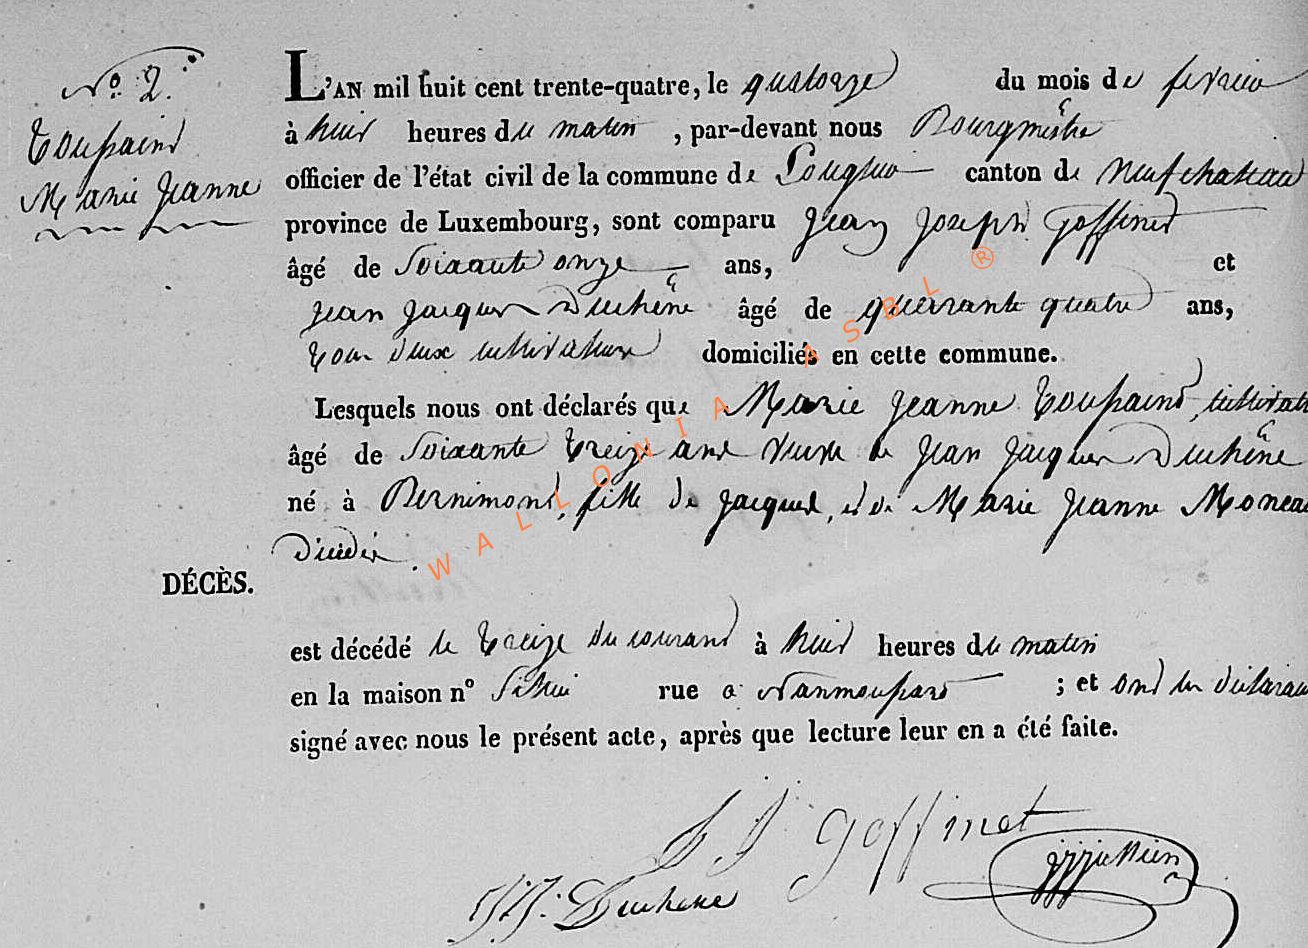 N° 2.
Toussaint
Marie Jeanne
L'AN mil huit cent trente-quatre, le quatorze du mois de fevrier
à huit heures du matin, par-devant nous Bourgmêstre
officier de l'état civil de la commune de Longlier canton de Neufchateau
province de Luxembourg, sont comparu Jean Joseph Goffinet
âgé de Soixante onze ans, et
Jean Jacques Duchêne âgé de quarante quatre ans,
tous deux cultivateurs domiciliés en cette commune.
Lesquels nous ont déclarés que Marie Jeanne Toussaint, cultivat
âgé de Soixante treize ans veuve de Jean Jacques Duchêne
né à Bernimont, fille de Jacques, et de Marie Jeanne Moneau
DÉCÈS.
est décédé le treize du courant à huit heures du matin
en la maison n° rue a Namoussart ; et ont les déclarans
signé avec nous le présent acte, après que lecture leur en a été faite.
J J Goffinet
J. J. Duchene
WALLONIA ASBL ®